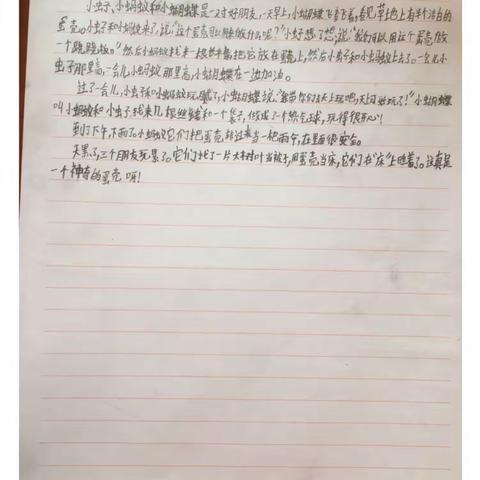 小虫子、小蚂蚁和小蝴蝶是一对好朋友,一天早上,小蝴蝶飞着飞着,看见草地上有半个洁白的
蛋壳。小虫子和小蚂蚁来了,说:“这个蛋壳可以用来做什么呢?”小虫子想了想,说:“我们可以用这个蛋壳做
一个跷跷板。”然后小蚂蚁找来一根,把它放在蛋壳上,然后小虫子和小蚂蚁上去了。一会儿小
虫子那里高,一会儿小蚂蚁那里高,小蝴蝶在一边加油。
过了一会儿,小虫子和小蚂蚁玩腻了,小蝴蝶说:“我带你们去天上玩吧,天上可好玩了!”小蝴蝶
叫小蚂蚁和小虫子找来几根丝线和一个袋子,做成了一个热气球,玩得很开心!
到了下午,下雨了,小蚂蚁它们把蛋壳转过来当一把雨伞,在里面很安全。
天黑了,三个朋友玩累了。它们找了一片大树叶当被子,用蛋壳当床,它们在“床”上睡着了。这真是
一个神奇的蛋壳呀!